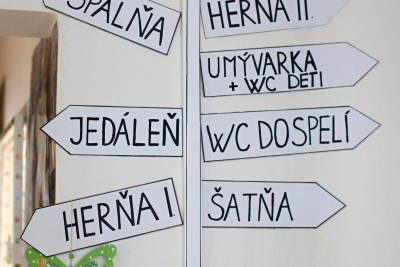 SPÁLŇA
HERNA II.
UMÝVARKA
+ WC DETI
JEDÁLEŇ
WC DOSPELÍ
HERŇA I.
ŠATŇA